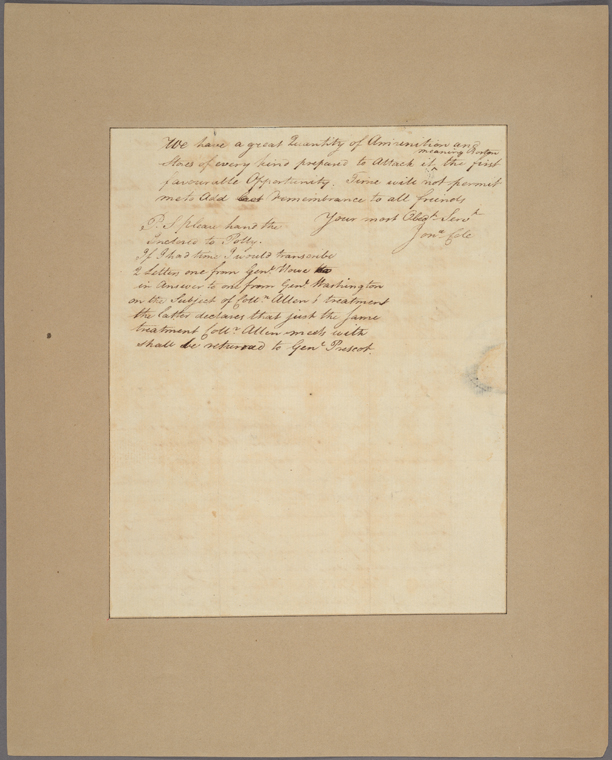 We have a great Quantity of Amunition and
meaning Boston
Stores of every kind prepared to Attack it ^ the first
favourable Oppertunity. Time will not permit
me to Add but Remembrance to all friends
Your most Obedt Servt
Jona. Cole
P. S please hand the
Inclosed to Polly.
If I had time I would transcribe
2 Letters one from Genl Howe
in Answer to one from Genl Washington
on the Subject of Colln Allen's treatment
the latter declares that just the same
treatment Colln Allen meets with
shall be returned to Genl Prescot